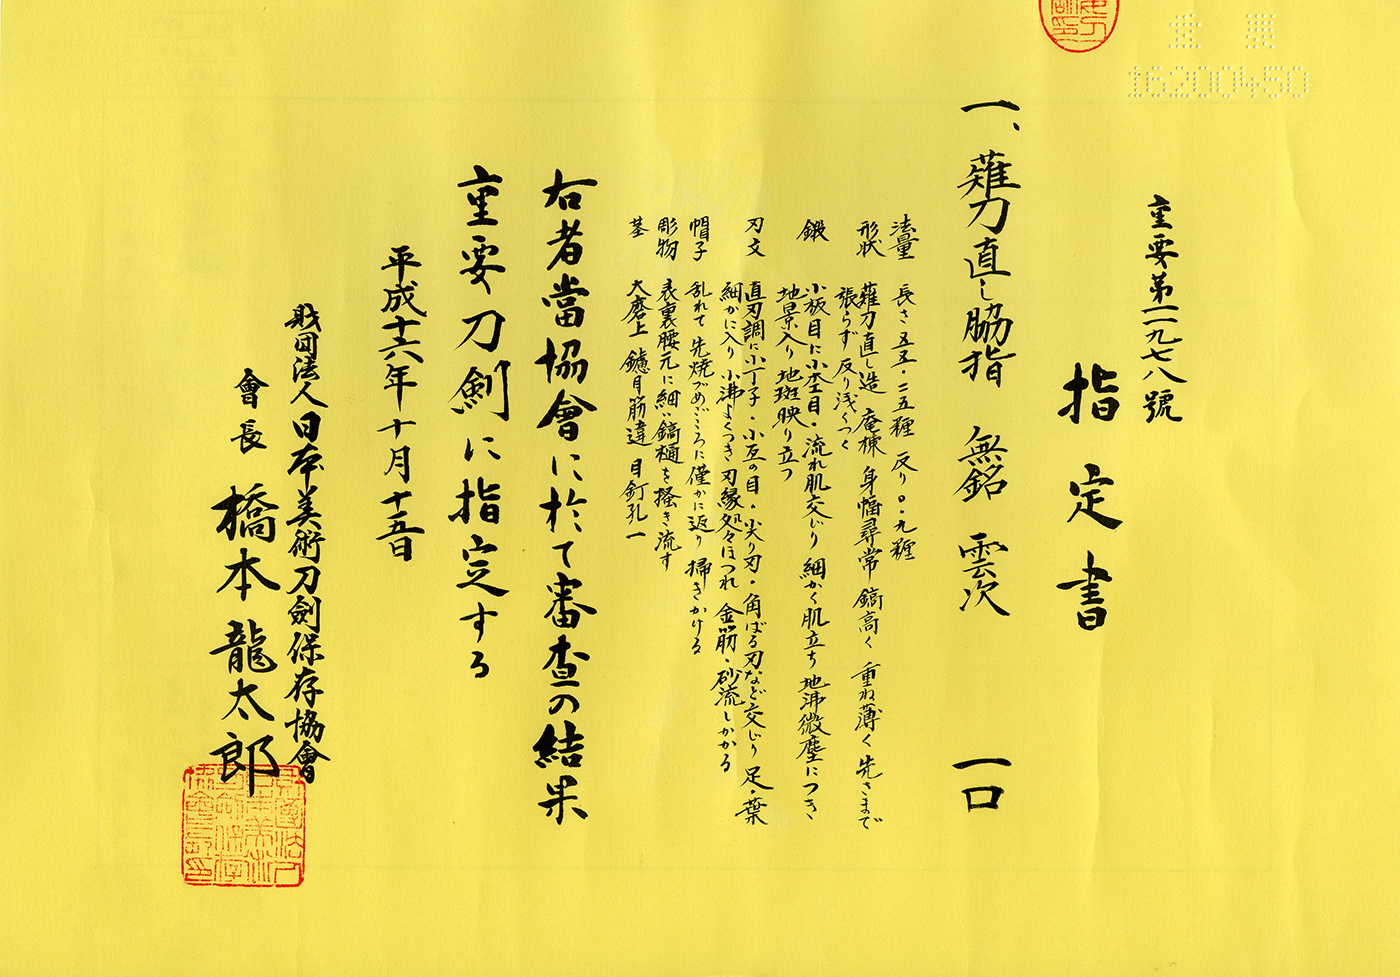 16200450
重要第一一九七八號
指定書
一、薙刀直し脇指 無銘 雲次 一口
法量 長さ五五・二五糎 反り〇・九糎
形状 薙刀直し造 庵棟 身幅尋常 鎬高く 重ね薄く 先きまで
張らず 反り浅くつく
鍛 小板目に小杢目・流れ肌交じり 細かく肌立ち 地沸微塵につき
地景入り 地斑映り立つ
刃文 直刃調に小丁子・小互の目・尖り刃・角ばる刃など交じり 足・葉
細かに入り 小沸よくつき 刃縁処々ほつれ 金筋・砂流しかかる
帽子 乱れて先焼づめごころに僅かに返り 掃きかける
彫物 表裏腰元に細い鎬樋を掻き流す
茎 大磨上 鑢目筋違 目釘孔一
右者當協會に於て審査の結果
重要刀劍に指定する
平成十六年十月十五日
財団法人日本美術刀劍保存協會
會長 橋本龍太郎